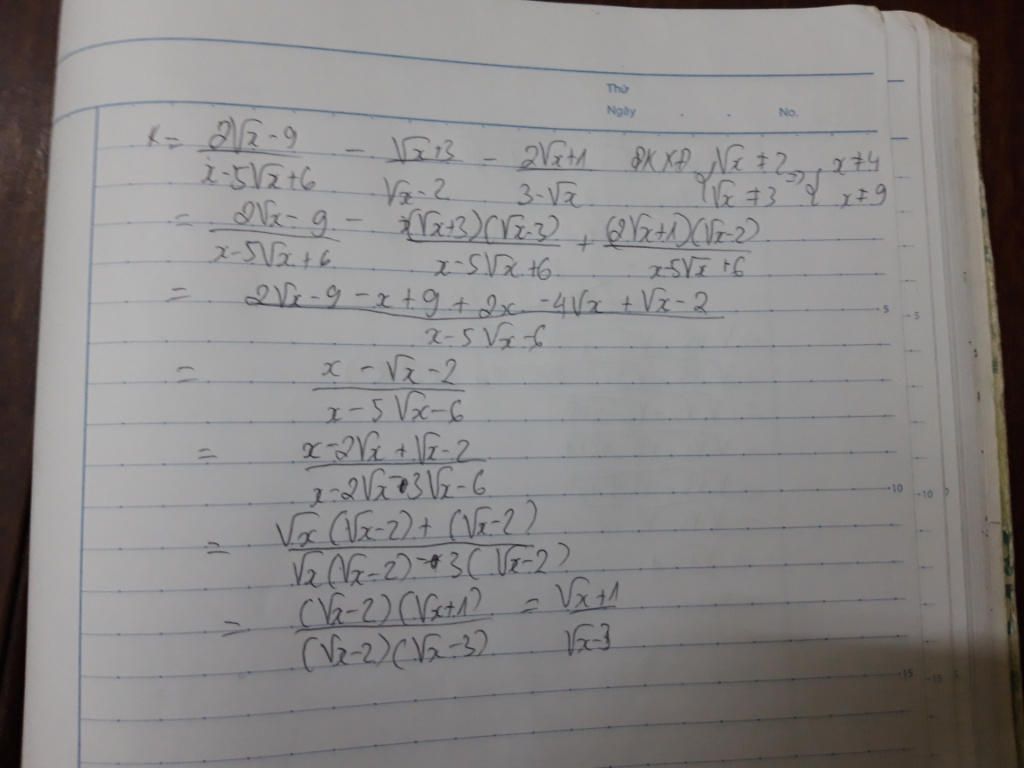 Thứ
Ngày . . No.
K = (2√x - 9)/(x - 5√x + 6) - (√x + 3)/(√x - 2) - (2√x + 1)/(3 - √x) ĐKXĐ {√x ≠ 2, √x ≠ 3 => {x ≠ 4, x ≠ 9
= (2√x - 9)/(x - 5√x + 6) - (√x + 3)(√x - 3)/(x - 5√x + 6) + (2√x + 1)(√x - 2)/(x - 5√x + 6)
= (2√x - 9 - x + 9 + 2x - 4√x + √x - 2)/(x - 5√x - 6)
5 5
= (x - √x - 2)/(x - 5√x - 6)
= (x - 2√x + √x - 2)/(x - 2√x - 3√x - 6)
10 10
= (√x(√x - 2) + (√x - 2))/(√x(√x - 2) - 3(√x - 2))
= (√x - 2)(√x + 1)/((√x - 2)(√x - 3)) = (√x + 1)/(√x - 3)
15 15